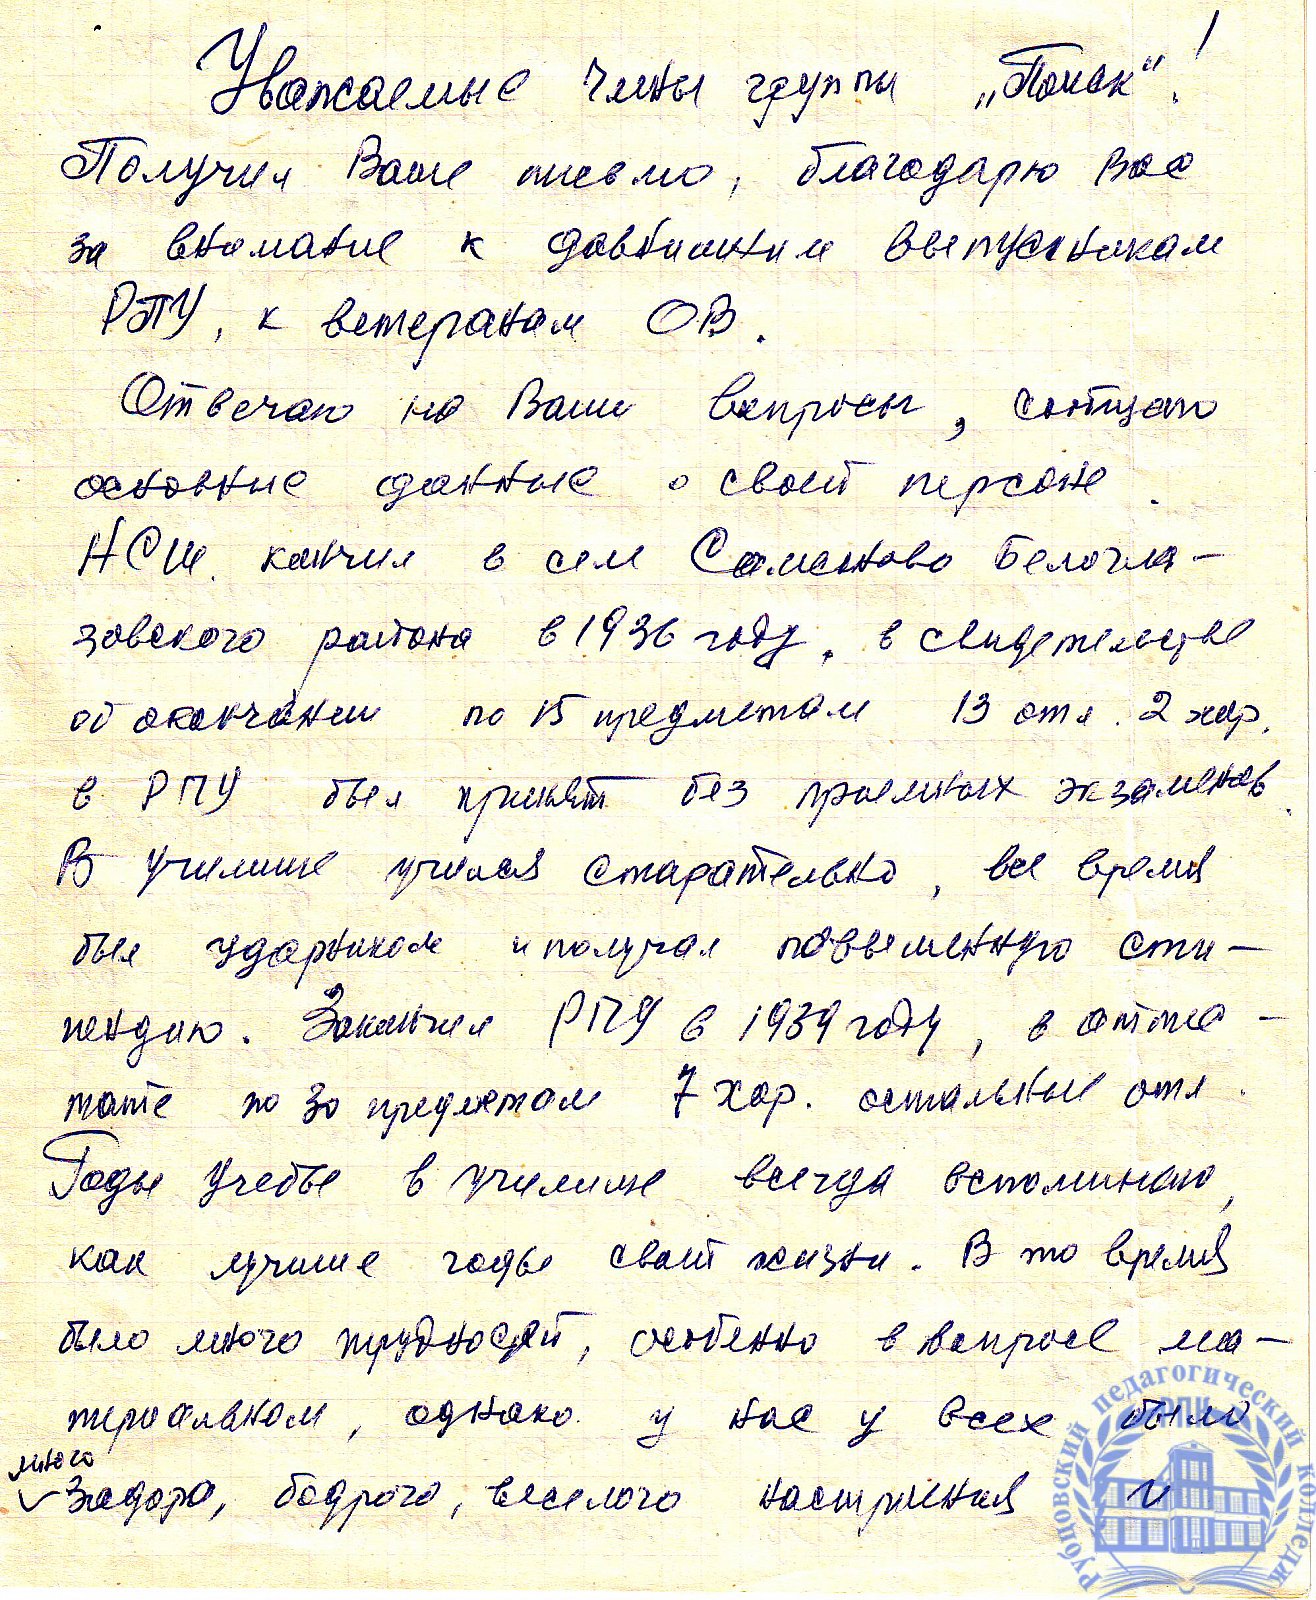 Уважаемые члены группы „Поиск“!
Получил Ваше письмо, благодарю Вас
за внимание к давнишним выпускникам
РПУ, к ветеранам ОВ.
Отвечаю на Ваши вопросы, сообщаю
основные данные о своей персоне.
НСШ. кончил в селе Самсоново Белогла-
зовского района в 1936 году, в свидетельстве
об окончании по 15 предметам 13 отл. 2 хор.
в РПУ был принят без приемных экзаменов.
В училище учился старательно, все время
был ударником и получал повышенную сти-
пендию. Закончил РПУ в 1939 году, в аттес-
тате по 30 предметам 7 хор. остальные отл.
Годы учебы в училище всегда вспоминаю,
как лучшие годы своей жизни. В то время
было много трудностей, особенно в вопросе ма-
териальном, однако у нас у всех было
много
задора, бодрого, веселого настроения и
Рубцовский педагогический колледж
РПК